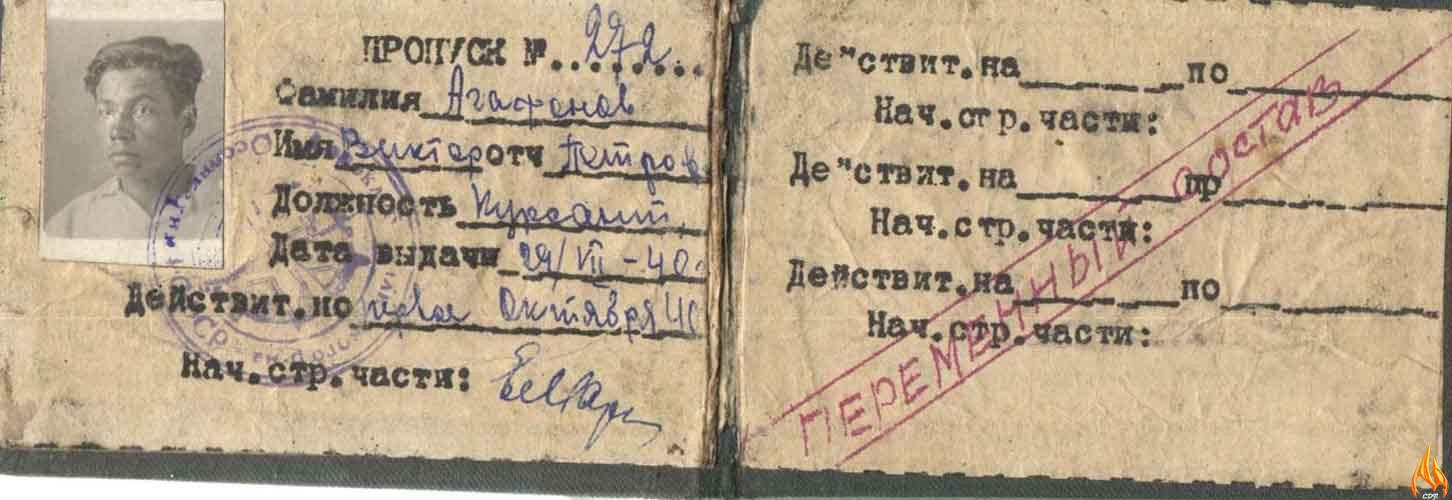 ПРОПУСК №. 272
Фамилия Агафонов
Имя Виктор отч Петров
Должность Курсант
Дата выдачи 29/VII-40г
Действит.по первое Октября 40
Нач.стр.части:
Действит.на по
Нач.стр.части:
Действит.на пр
Нач.стр.части:
Действит.на по
Нач.стр.части:
ПЕРЕМЕННЫЙ состав